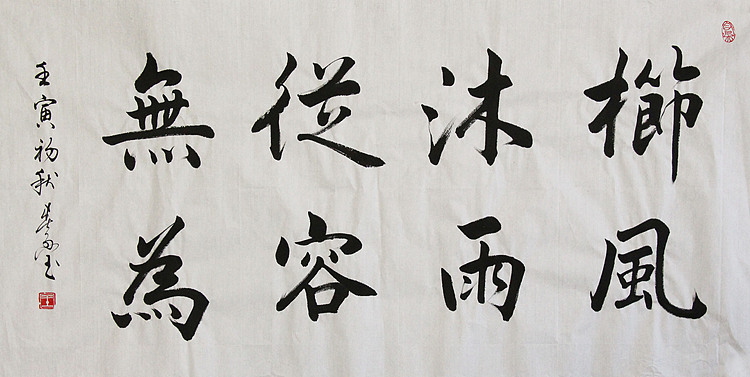 櫛風
沐雨
從容
無為
壬寅初秋